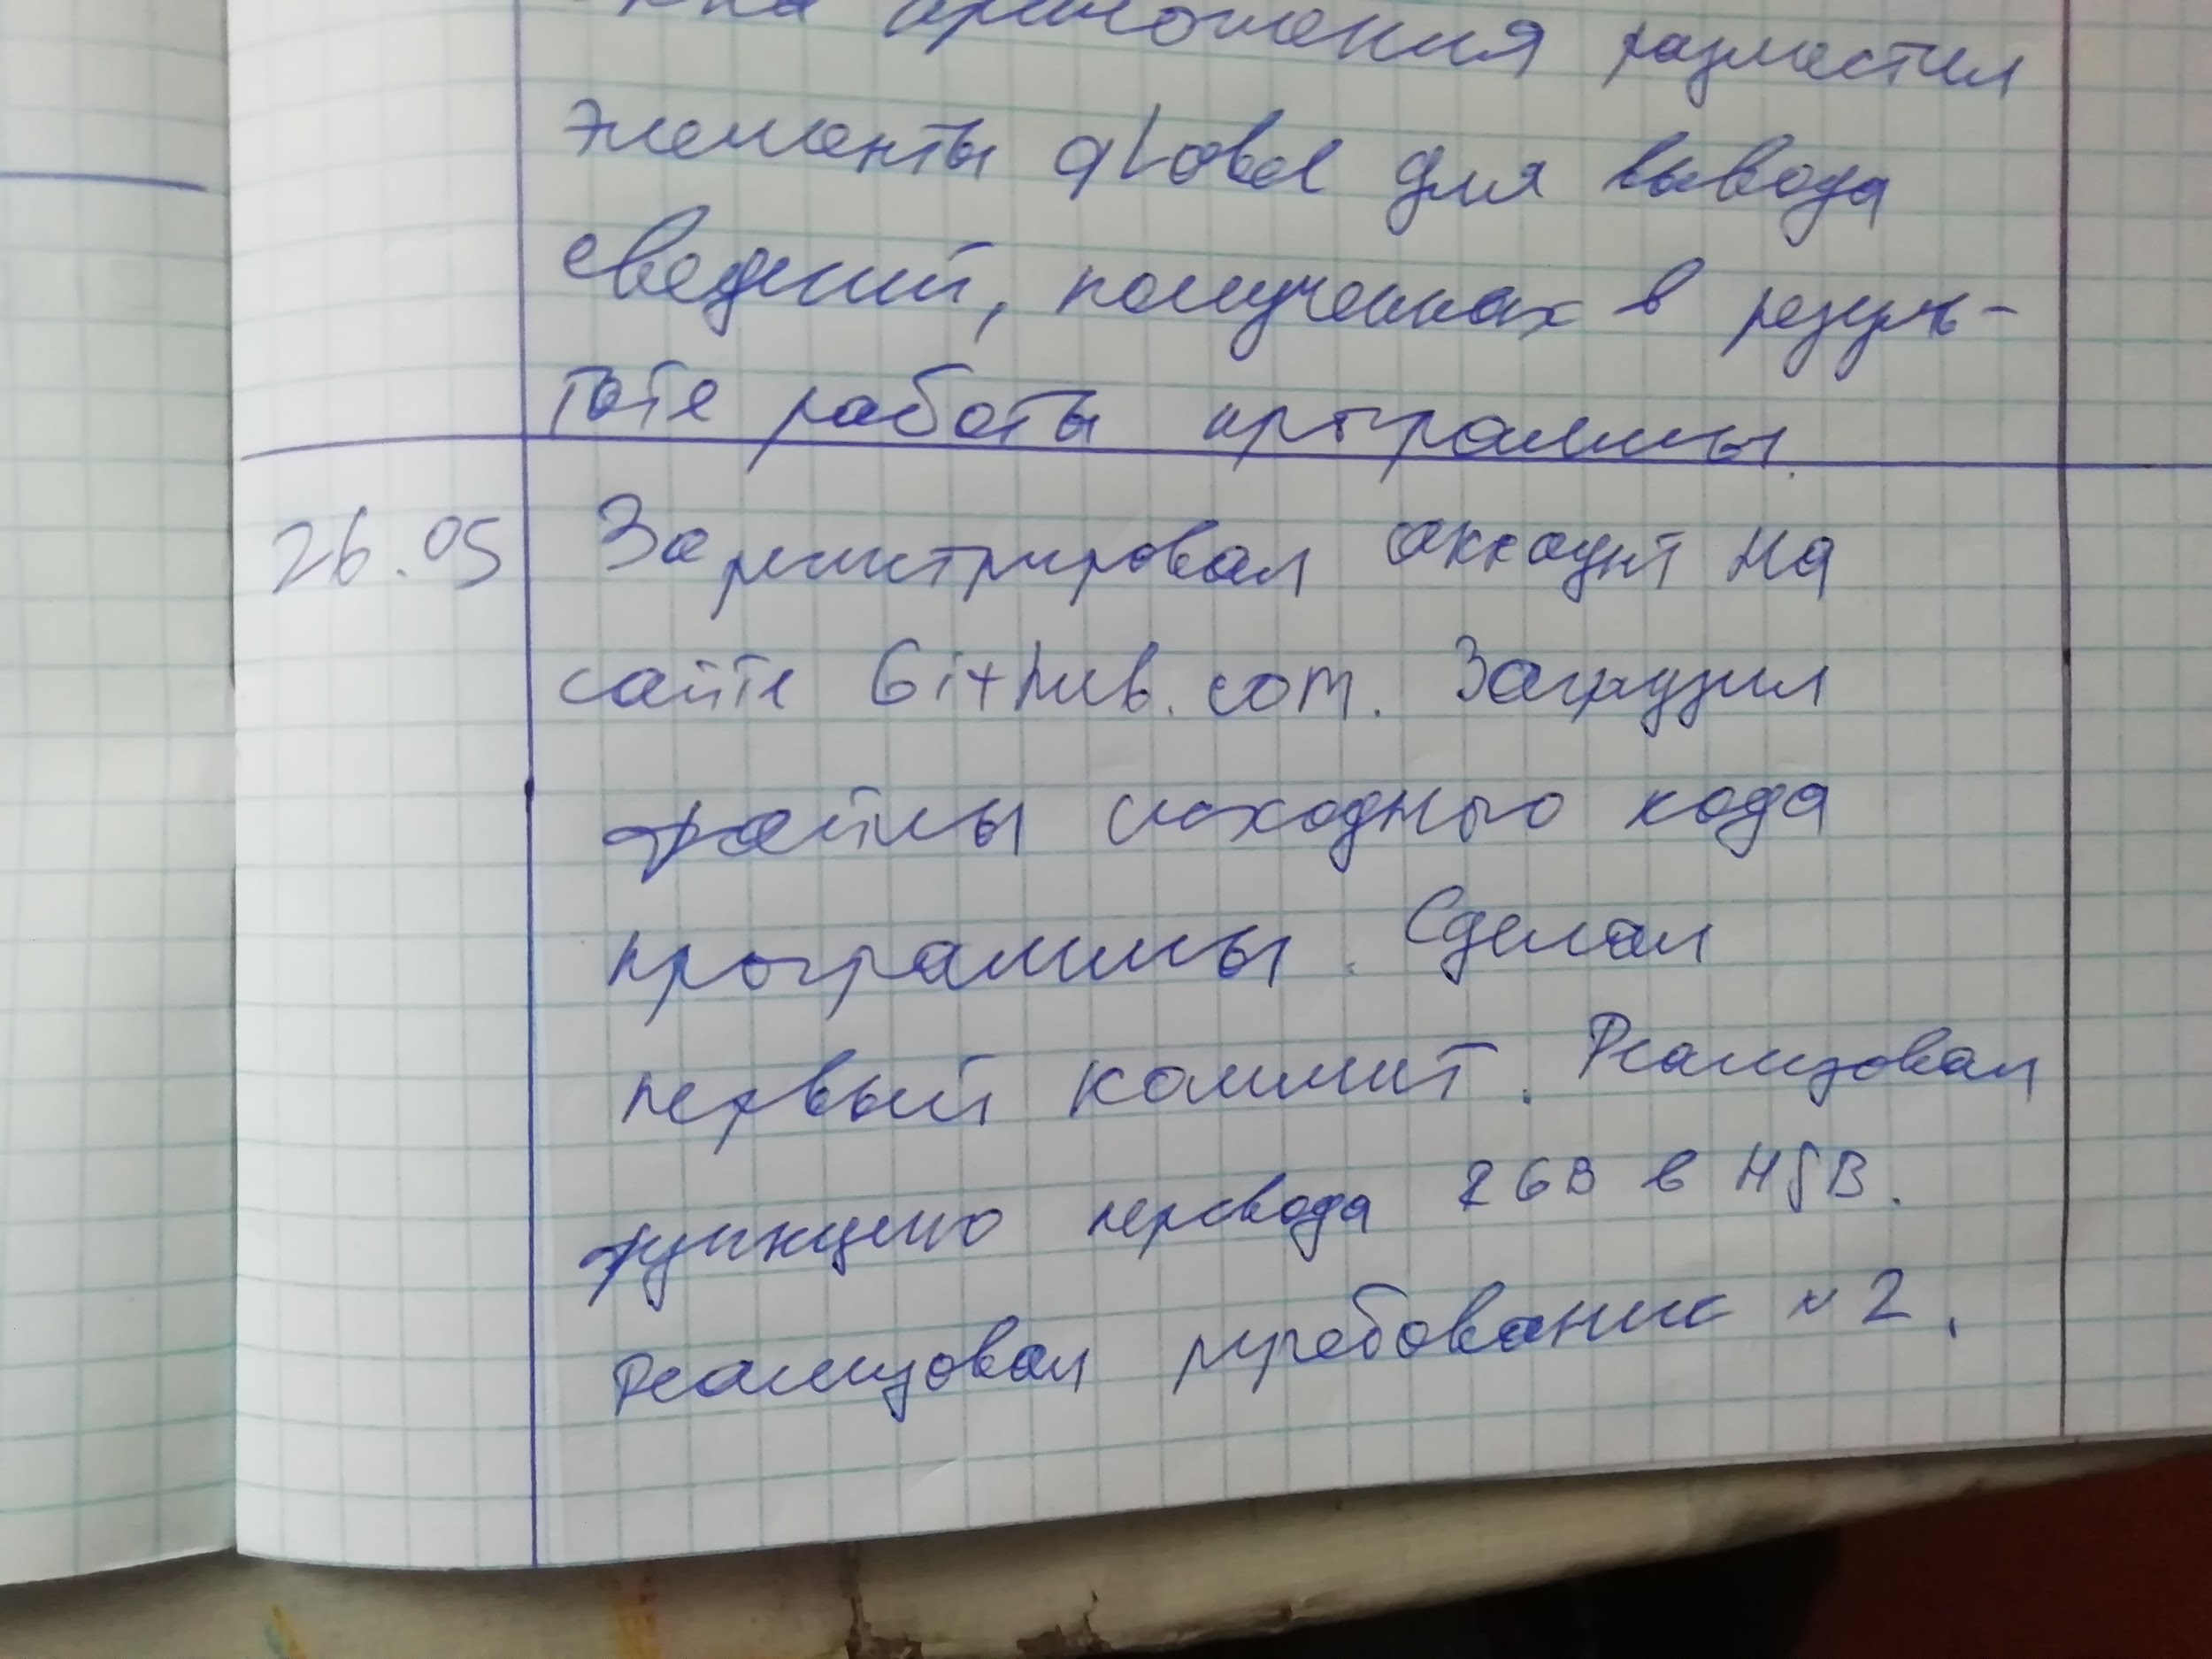 приложения разместил
элементы qLabel для вывода
сведений, полученных в резуль-
тате работы программы.
26.05 Зарегистрировал аккаунт на
сайте Github.com. Загрузил
файлы исходного кода
программы. Сделал
первый коммит. Реализовал
функцию перевода RGB в HSB.
Реализовал требование №2.